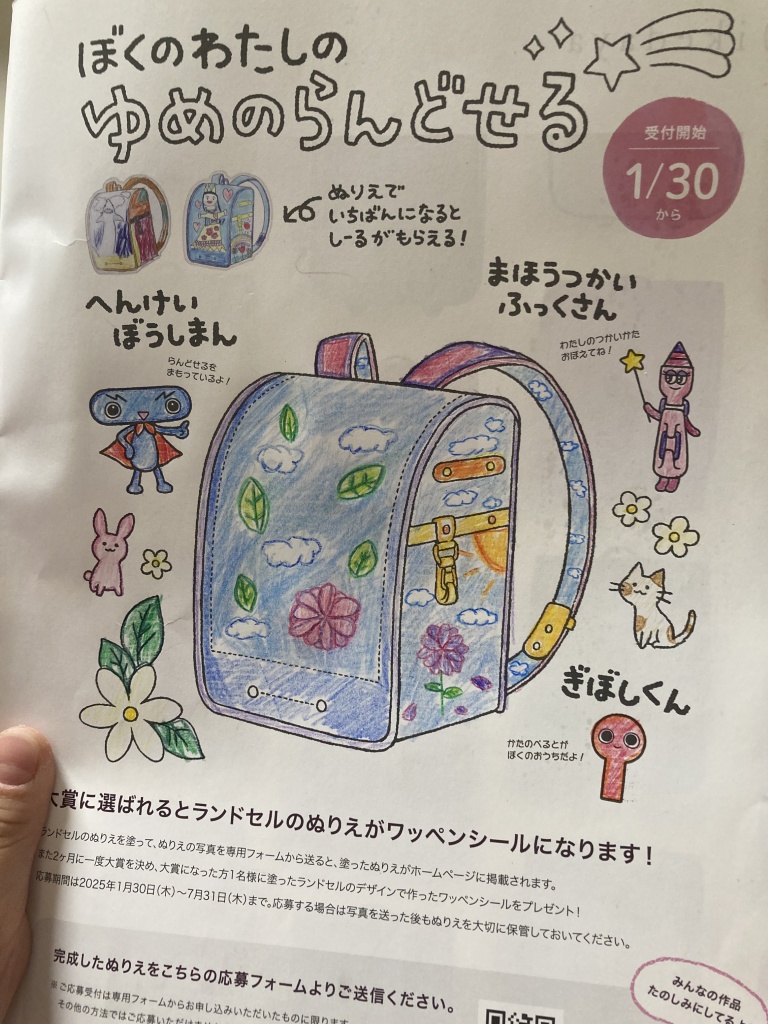 ぼくのわたしの
ゆめのらんどせる
受付開始
1/30
から
ぬりえで
いちばんになると
しーるがもらえる!
へんけい
ぼうしまん
らんどせるを
まもっているよ!
まほうつかい
ふっくさん
わたしのつかいかた
おぼえてね!
ぎぼしくん
かたのべるとが
ぼくのおうちだよ!
大賞に選ばれるとランドセルのぬりえがワッペンシールになります!
ランドセルのぬりえを塗って、ぬりえの写真を専用フォームから送ると、塗ったぬりえがホームページに掲載されます。
また2ヶ月に一度大賞を決め、大賞になった方1名様に塗ったランドセルのデザインで作ったワッペンシールをプレゼント!
応募期間は2025年1月30日(木)〜7月31日(木)まで。応募する場合は写真を送った後もぬりえを大切に保管しておいてください。
完成したぬりえをこちらの応募フォームよりご送信ください。
※ご応募受付は専用フォームからお申し込みいただいたものに限ります。
その他の方法ではご応募いただけませ
みんなの作品
たのしみにしてるよ